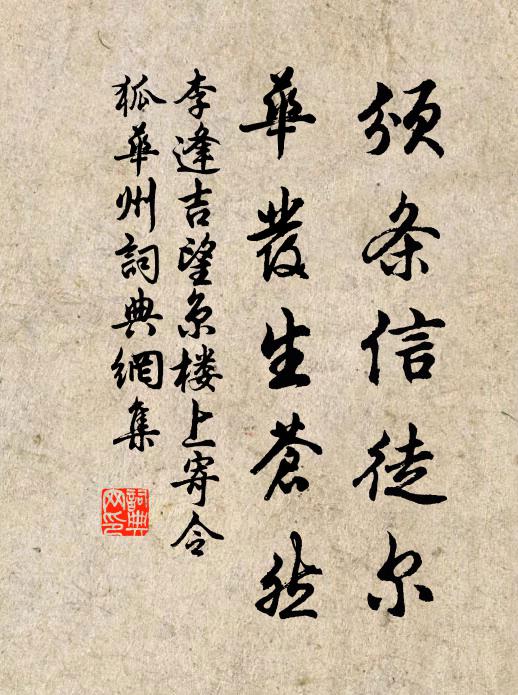 颁条信徒尔
华發生蒼然
李逢吉望京楼上寄令
狐华州詞典網集
詞典
网印